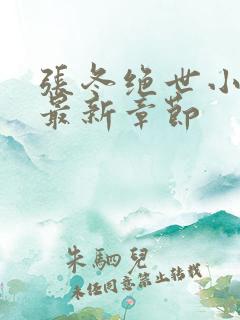 張冬绝世小
最新章節
朱駟兒
未经同意禁止转载